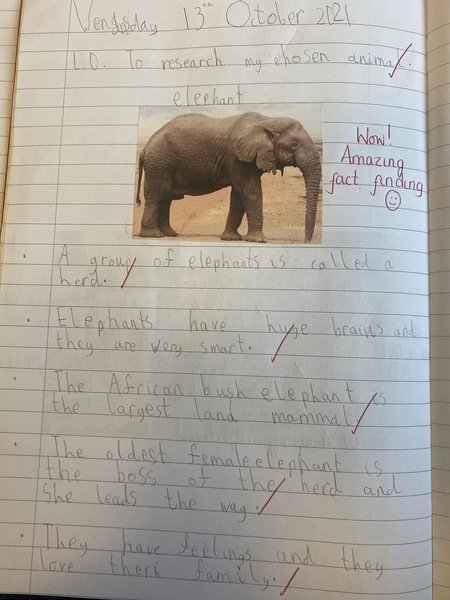 Wendsday 13th October 2021
L.O. To research my chosen animal.
elephant
Wow!
Amazing
fact finding
A group of elephants is called a
herd.
Elephants have huge brains and
they are very smart.
The African bush elephant is
the largest land mammal
The oldest female elephant is
the boss of the herd and
She leads the way.
They have feelings and they
love there family.